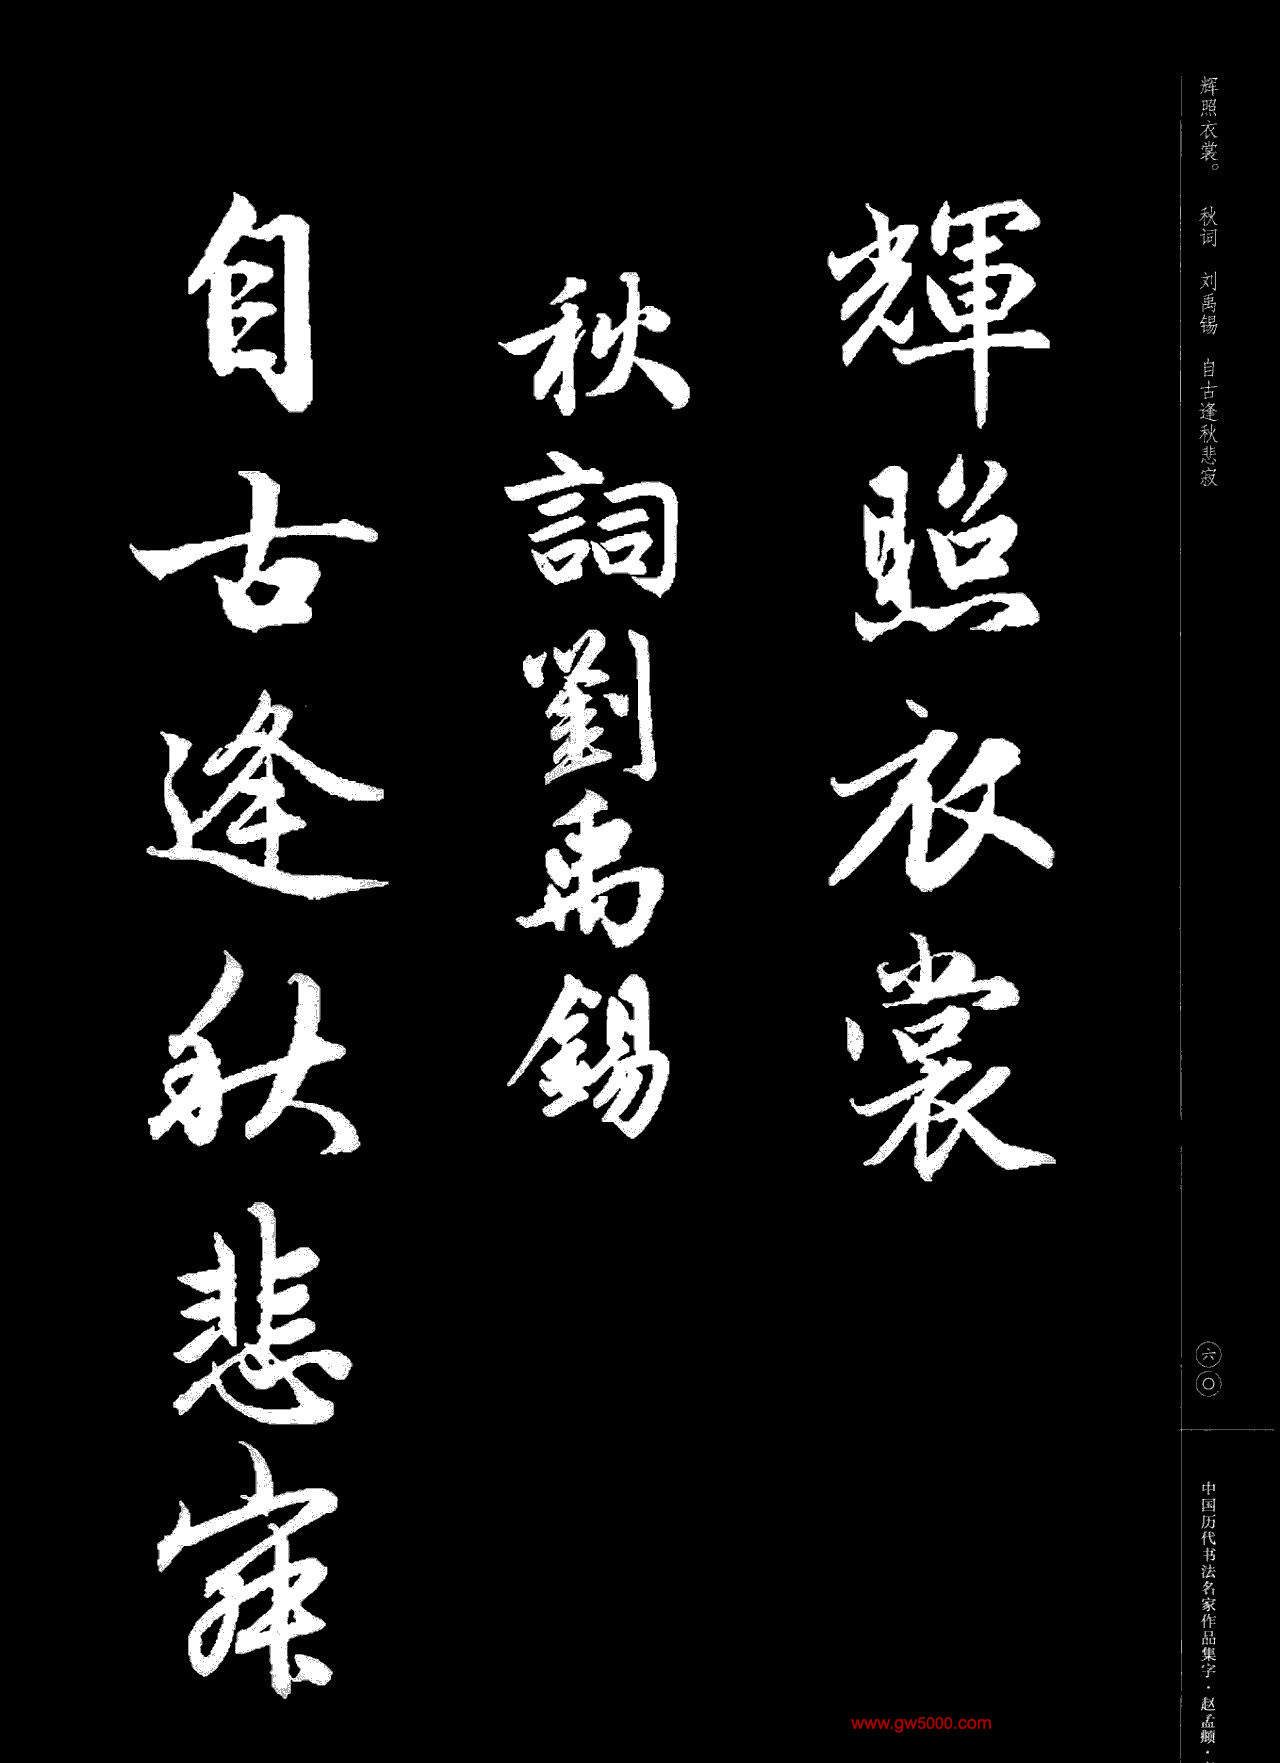 輝照衣裳
秋詞劉禹錫
自古逢秋悲寂
辉照衣裳。 秋词 刘禹锡 自古逢秋悲寂
六〇
中国历代书法名家作品集字·赵孟頫·
www.gw5000.com